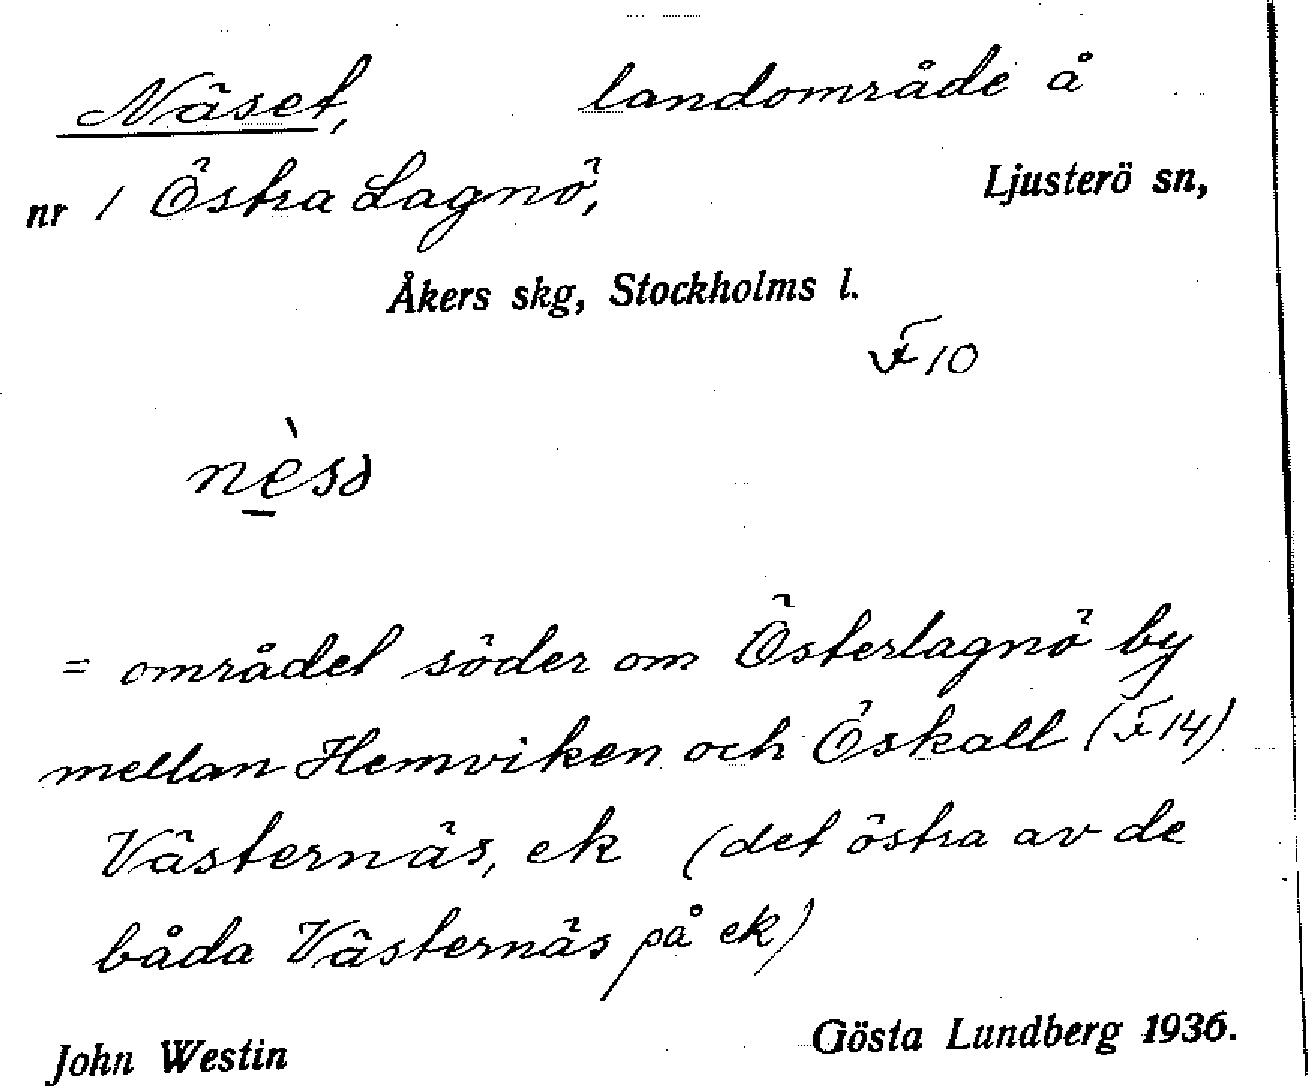 Näset, landområde å
nr 1 Östra Lagnö, Ljusterö sn,
Åkers skg, Stockholms l.
F 10
nèsə
= området söder om Österlagnö by
mellan Hemviken och Öskall (F 14)
Västernäs, ek (det östra av de
båda Västernäs på ek)
John Westin Gösta Lundberg 1936.